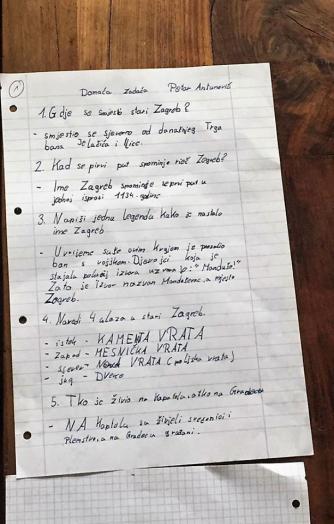 1
Domaća zadaća Petar Antunović
1. Gdje se smjesti stari Zagreb?
- smjestio se sjeverno od današnjeg Trga
bana Jelačića i Ilice.
2. Kad se prvi put spominje riječ Zagreb?
- Ime Zagreb spominje se prvi put u
jednoj ispravi 1134. godine
3. Napiši jednu legendu kako je nastalo
ime Zagreb
- U vrijeme suše ovim krajem je
ban s vojskom. Djevojci koja je
stajala pokraj izvora uzvrnuo je: "Manduša!"
Zato je izvor nazvan Manduševac, a mjesto
Zagreb.
4. Navedi 4 ulaza u stari Zagreb.
- istok - KAMENA VRATA
- zapad - MESNIČKA VRATA
- sjever - Nova VRATA (poljska vrata)
- jug - Dverce
5. Tko je živio na Kaptolu, a tko na Gradecu
- NA Kaptolu su živjeli svećenici i
plemstvo, a na Gradecu građani.